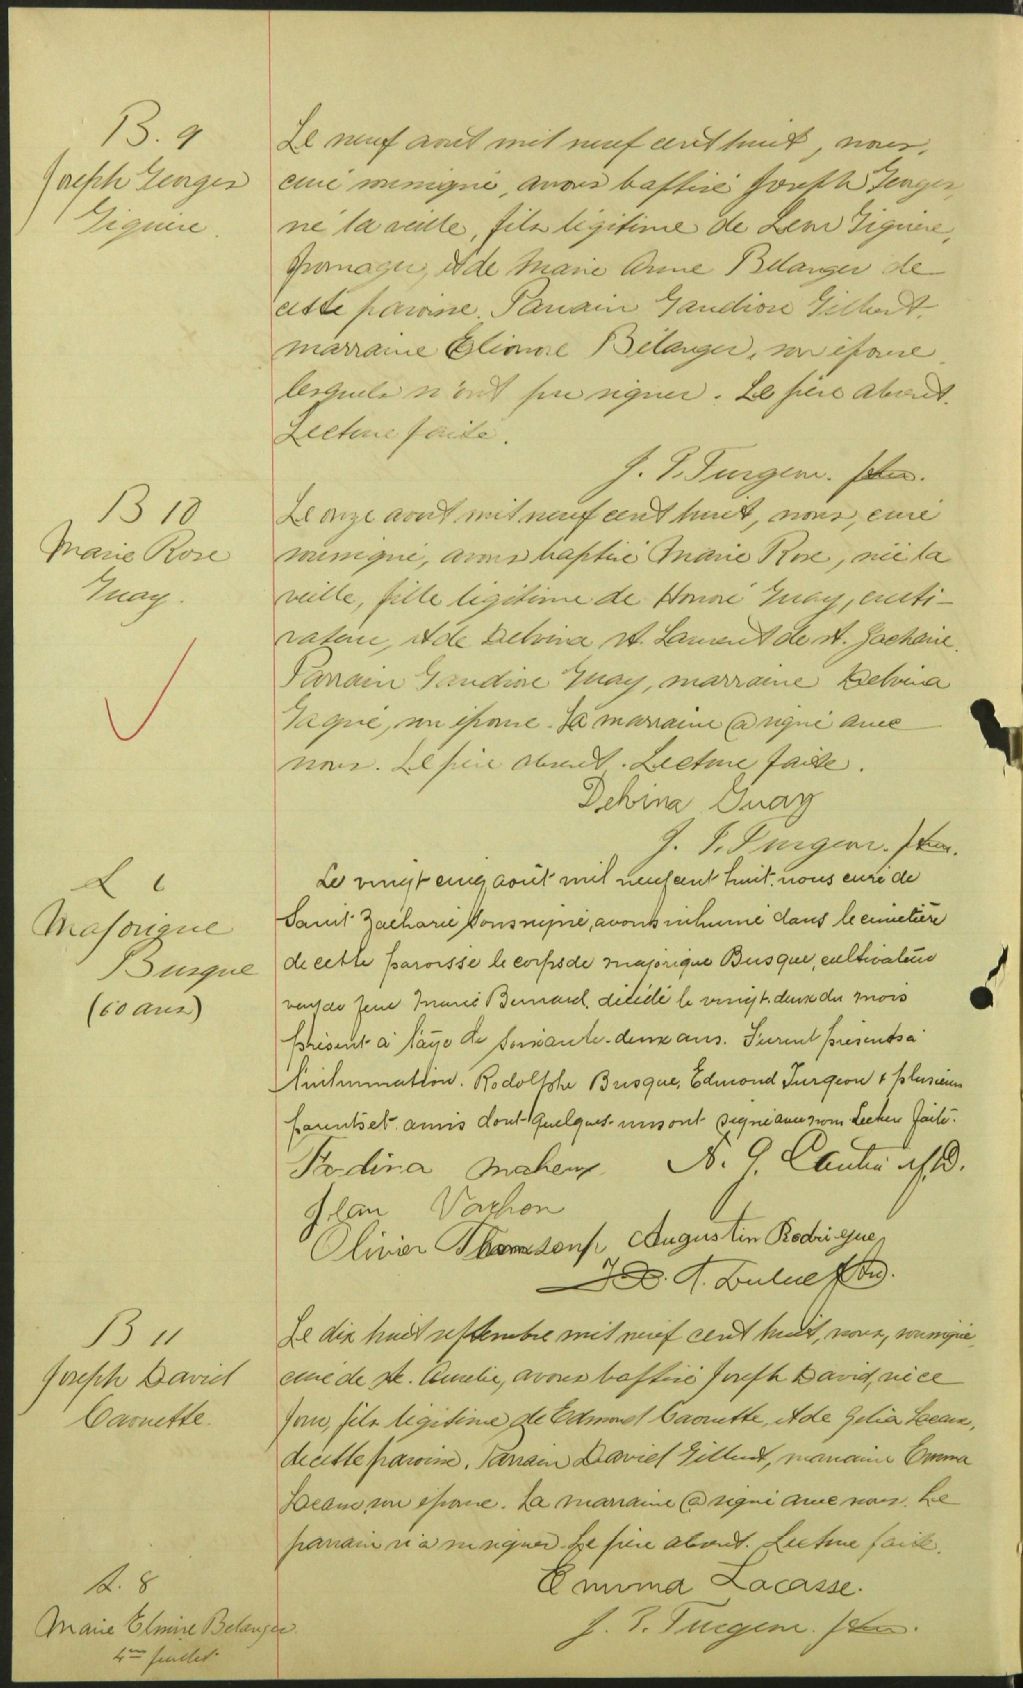 B. 9
Joseph Georges
Giguère.
Le neuf août mil neuf cent huit, nous,
curé soussigné, avons baptisé Joseph Georges,
né la veille, fils légitime de Léon Giguère,
fromager, et de Marie Anne Bélanger de
cette paroisse. Parrain Gaudiose Gilbert.
marraine Elionore Bélanger, son épouse
lesquels n'ont pu signer. Le père absent.
Lecture faite.
J. P. Turgeon. ptre.
B 10
Marie Rose
Guay.
Le onze août mil neuf cent huit, nous, curé
soussigné, avons baptisé Marie Rose, née la
veille, fille légitime de Honoré Guay, culti-
vateur, et de Delvina St. Laurent de St. Zacharie.
Parrain Gaudiose Guay, marraine Delvina
Gagné, son épouse. La marraine a signé avec
nous. Le père absent. Lecture faite.
Delvina Guay
J. P. Turgeon. ptre.
Majorique
Busque
(60 ans)
Le vingt cinq août mil neuf cent huit. nous curé de
Saint Zacharie soussigné, avons inhumé dans le cimetière
de cette paroisse le corps de majorique Busque, cultivateur
feue Marie Bernard, décédé le vingt-deux du mois
présent à l'âge de soixante-deux ans. Furent présents à
l'inhumation. Rodolphe Busque, Edmond Turgeon & plusieurs
parents et amis dont quelques-uns ont signé avec nous Lecture faite.
maheux N. G. M.D.
Jean Vachon
Olivier Augustin Rodrigue
ptre.
B 11
Joseph David
Caouette.
Le dix huit septembre mil neuf cent huit, nous, soussigné,
curé de Ste. Aurelie, avons baptisé Joseph David, né ce
jour, fils légitime de Edmond Caouette, et de Gelia
de cette paroisse. Parrain David Gilbert, marraine Emma
son épouse. La marraine a signé avec nous. Le
parrain n'a su signer. Le père absent. Lecture faite.
Emma Lacasse.
J. P. Turgeon. ptre.
S. 8
Marie Elmire Belanger.
4me juillet